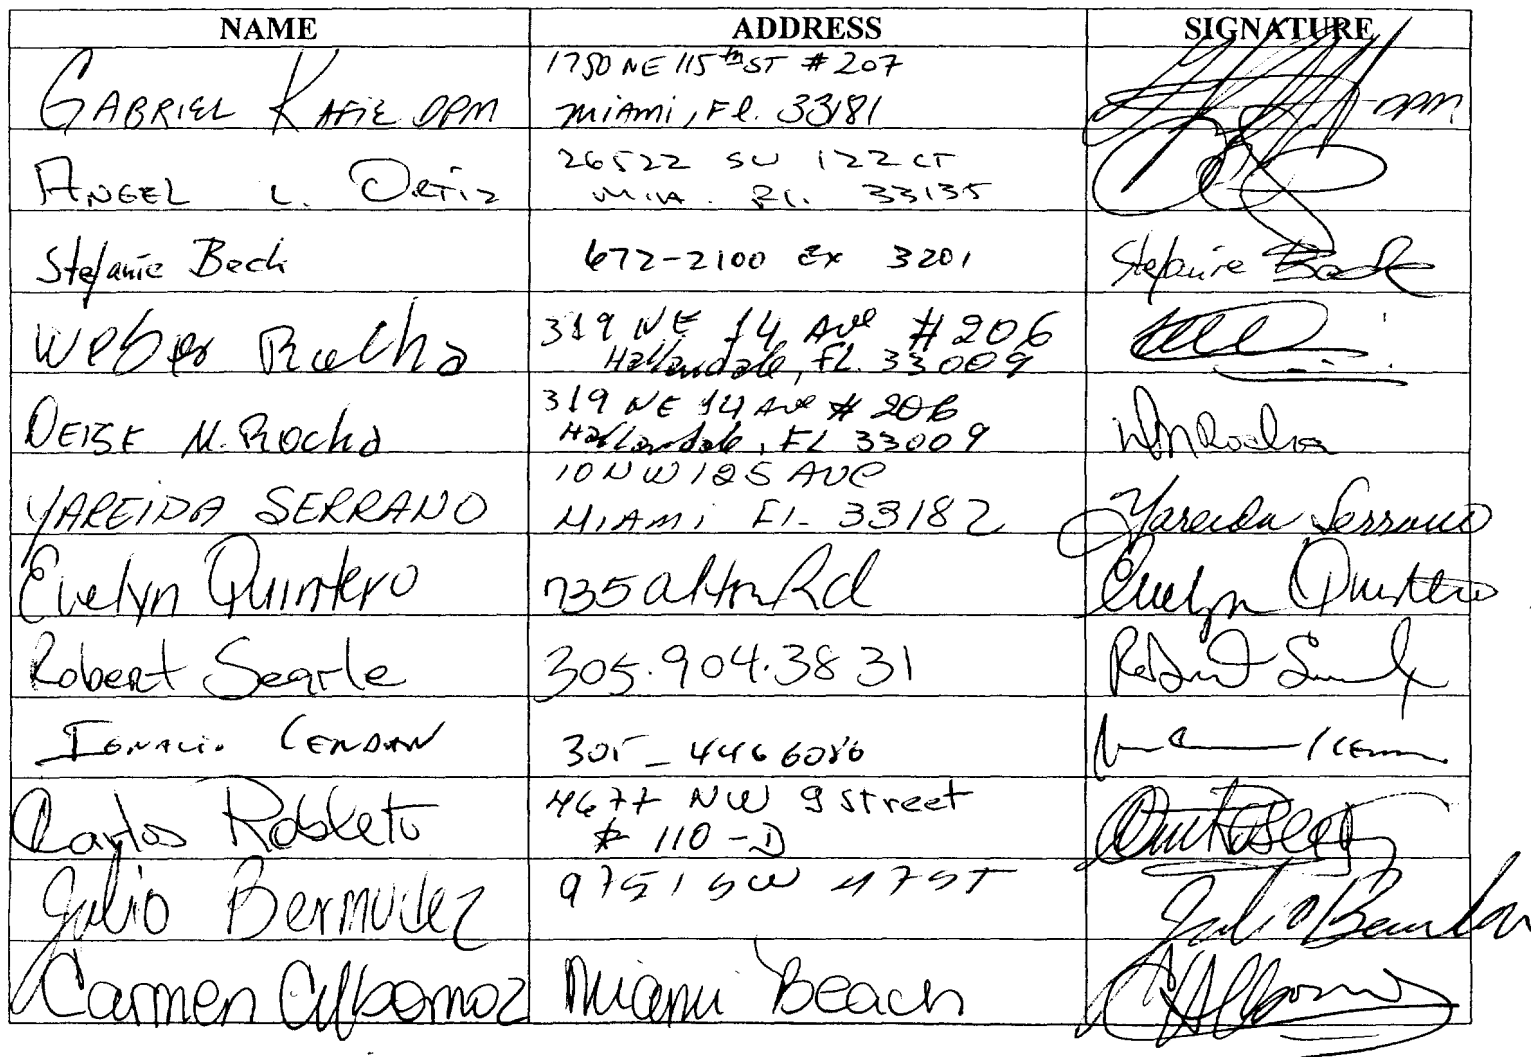 NAME ADDRESS SIGNATURE
GABRIEL KAFIE DPM
1750 NE 115th ST # 207
MIAMI, FL. 33181
DPM
ANGEL L. ORTIZ
26522 SW 122 CT
MIA. FL. 33135
Stefanie Beck 672-2100 Ex 3201 Stefanie Beck
Weber Rocha
319 NE 14 Ave # 206
Hallandale, FL. 33009
DEISE M. Rocha
319 NE 14 Ave # 206
Hallandale, FL 33009
DMRocha
YAREIDA SERRANO
10 NW 125 AVE
MIAMI Fl. 33182
Yareida Serrano
Evelyn Quintero 735 alton Rd Evelyn Quintero
Robert Searle 305.904.3831 Robert
IGNACIO CENDAN 305_4466086
Carlos Robleto
4677 NW 9 Street
# 110-D
Julio Bermudez 9751 SW 47 ST Julio
Carmen Albornoz Miami Beach CAlbornoz